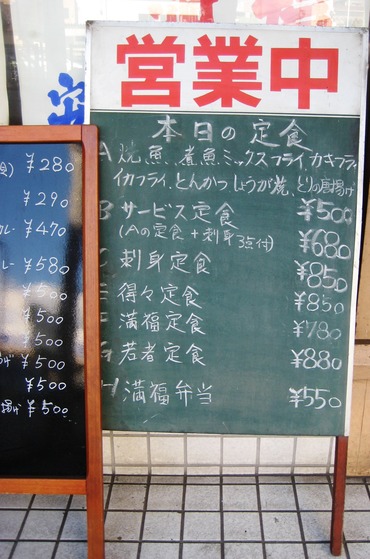 営業中
本日の定食
A 焼魚、煮魚、ミックスフライ カキフライ
イカフライ、とんかつ しょうが焼、とりの唐揚げ
¥500
B サービス定食
(Aの定食+刺身3点付) ¥680
C 刺身定食 ¥850
E 得々定食 ¥850
F 満福定食 ¥780
G 若者定食 ¥880
H 満福弁当 ¥550
¥280
¥290
カレー ¥470
レー ¥580
¥500
¥500
¥500
げ ¥500
揚げ ¥500